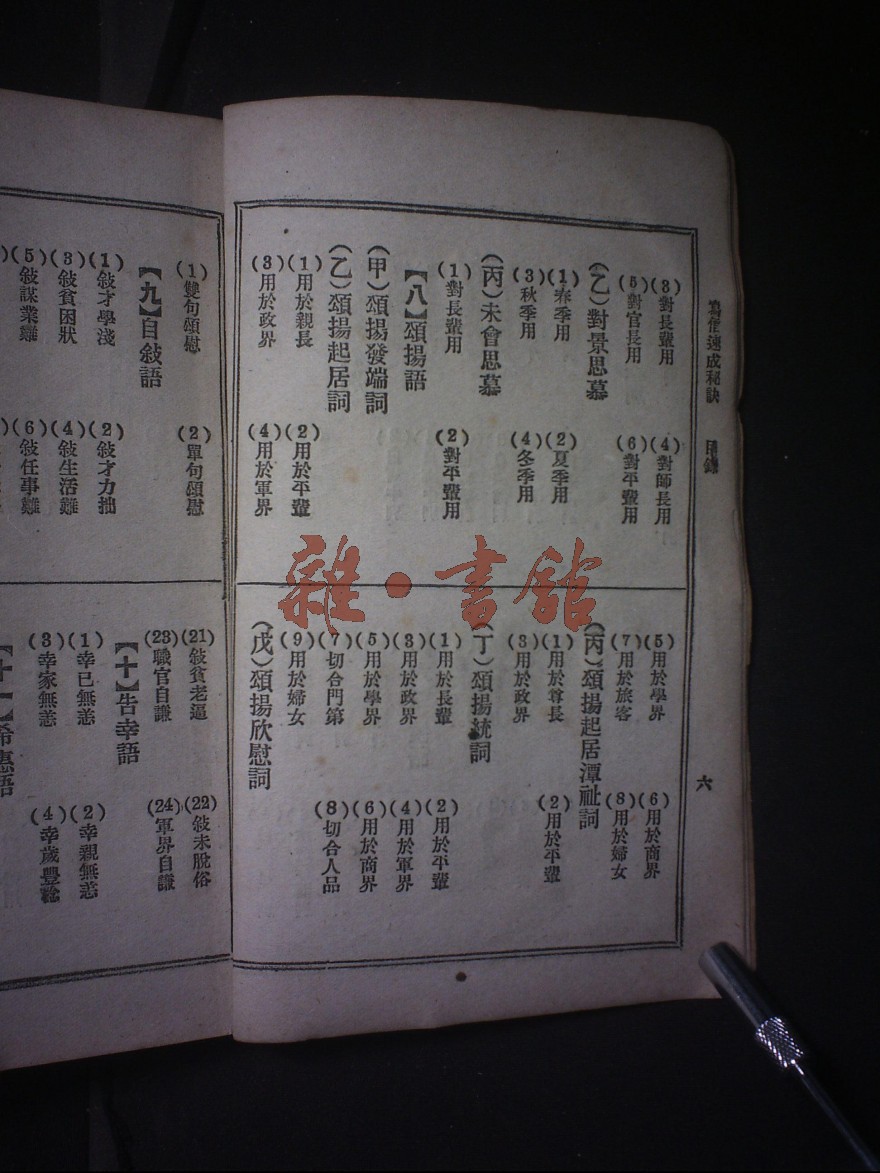 寫信速成秘訣 目錄
六
(3)對長輩用 (4)對師長用
(5)對官長用 (6)對平輩用
(乙)對景思慕
(1)春季用 (2)夏季用
(3)秋季用 (4)冬季用
(丙)未會思慕
(1)對長輩用 (2)對平輩用
【八】頌揚語
(甲)頌揚發端詞
(乙)頌揚起居詞
(1)用於親長 (2)用於平輩
(3)用於政界 (4)用於軍界
(5)用於學界 (6)用於商界
(7)用於旅客 (8)用於婦女
(丙)頌揚起居潭祉詞
(1)用於尊長 (2)用於平輩
(3)用於政界
(丁)頌揚統詞
(1)用於長輩 (2)用於平輩
(3)用於政界 (4)用於軍界
(5)用於學界 (6)用於商界
(7)切合門第 (8)切合人品
(9)用於婦女
(戊)頌揚欣慰詞
(1)雙句頌慰 (2)單句頌慰
【九】自敍語
(1)敍才學淺 (2)敍才力拙
(3)敍貧困狀 (4)敍生活難
(5)敍謀業難 (6)敍任事難
(21)敍貧老逼 (22)敍未脫俗
(23)職官自謙 (24)軍界自謙
【十】告幸語
(1)幸己無恙 (2)幸親無恙
(3)幸家無恙 (4)幸歲豐稔
【十一】希惠語
雜·書館